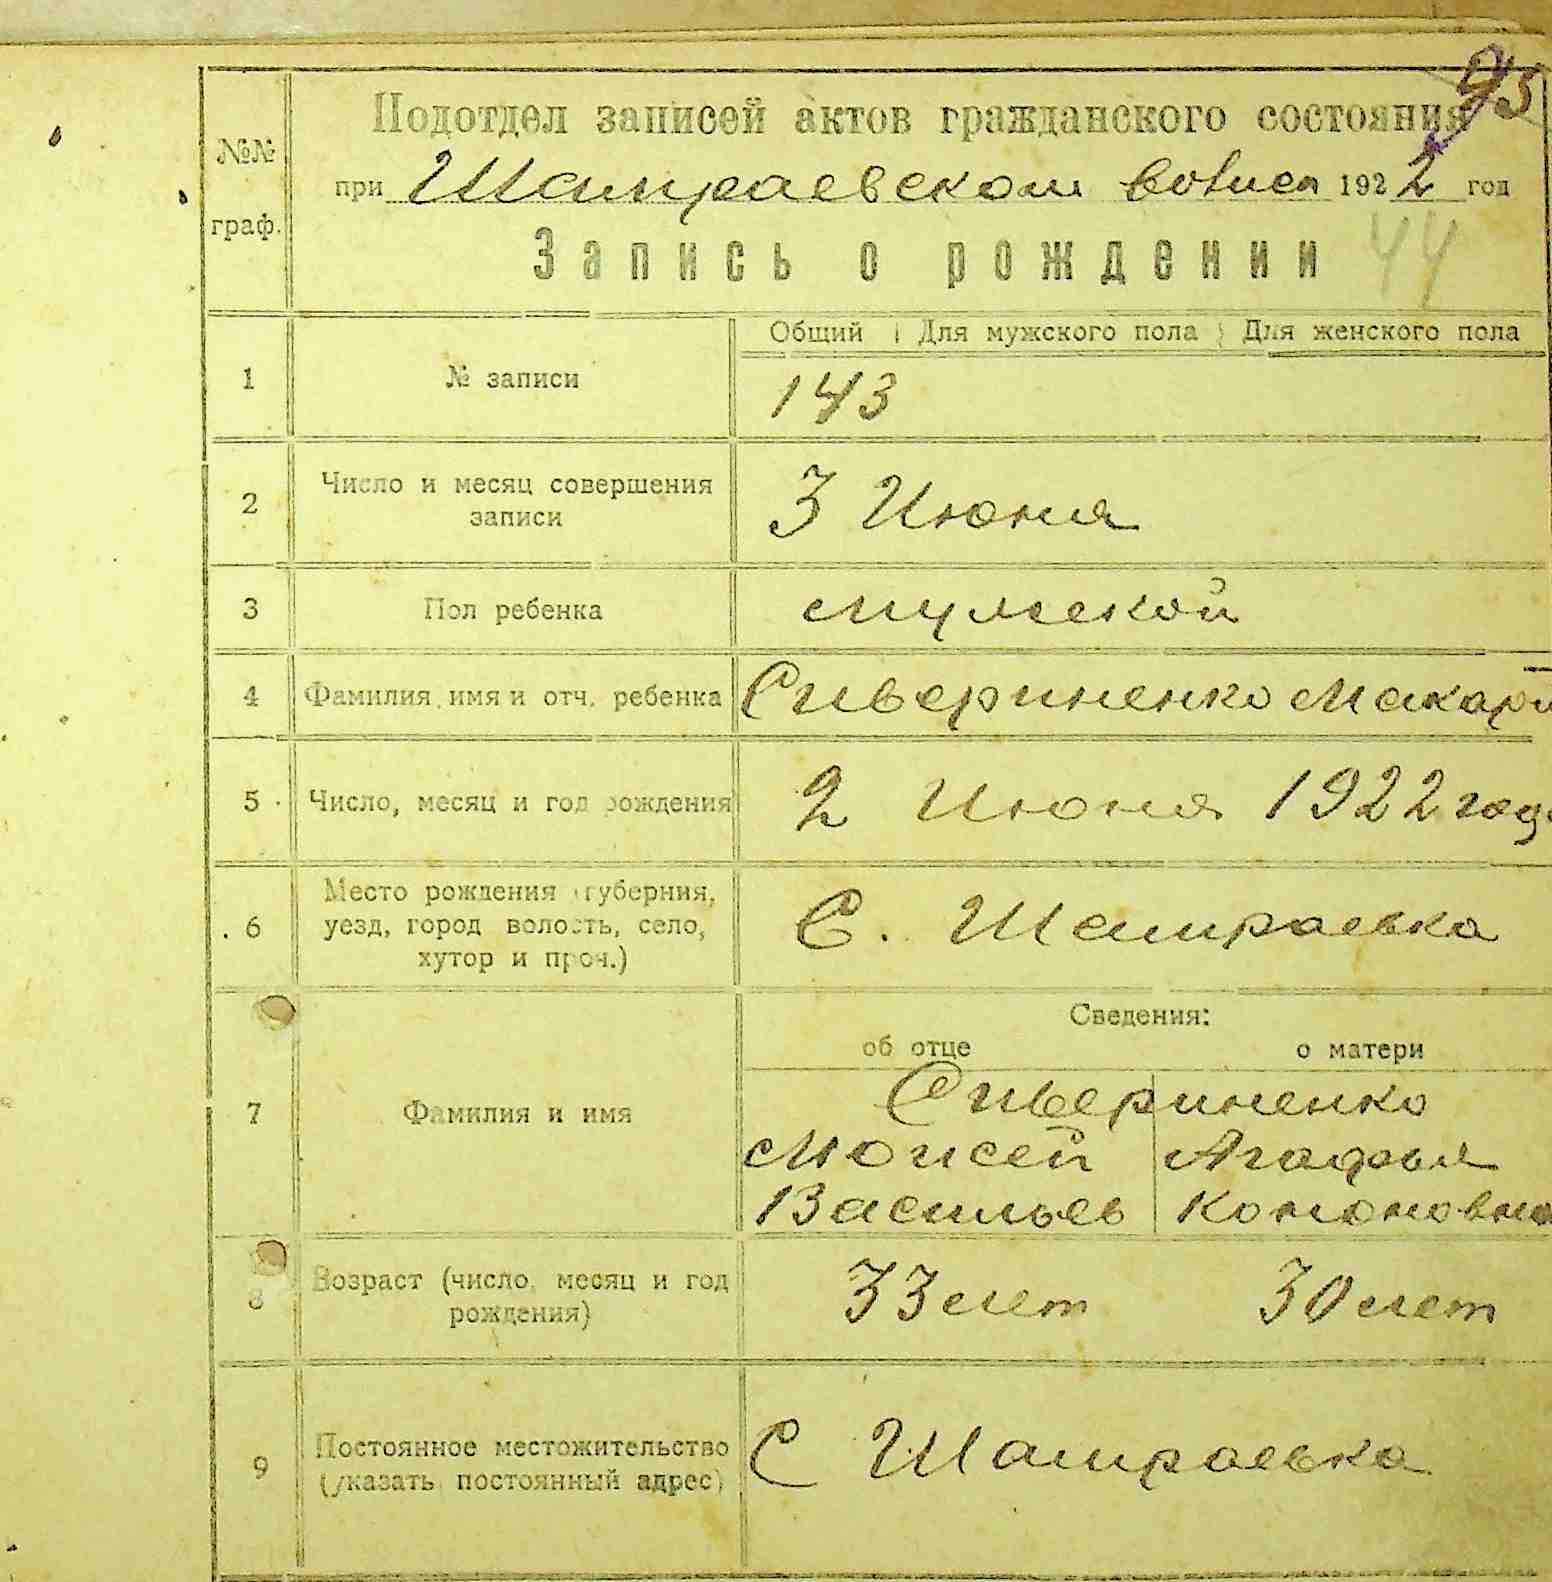 95
Подотдел записей актов гражданского состояния
№№ граф.
при Шамраевском 1922 год
Запись о рождении
44
Общий Для мужского пола Для женского пола
1 № записи 143
2 Число и месяц совершения записи 3 Июня
3 Пол ребенка мужской
4 Фамилия, имя и отч. ребенка Сивериненко Макари
5 Число, месяц и год рождения 2 Июня 1922 год
6 Место рождения (губерния, уезд, город волость, село, хутор и проч.) С. Шамраевка
Сведения:
об отце о матери
7 Фамилия и имя Сивериненко
Моисей Агафья
Васильев Кононовна
8 Возраст (число, месяц и год рождения) 33 лет 30 лет
9 Постоянное местожительство (указать постоянный адрес) С Шамраевка